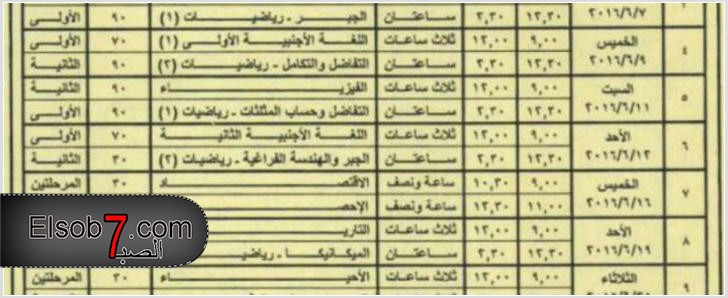 ٢٠١٦/٦/٧ ١٢,٣٠ ٢,٣٠ ساعتان الجبر - رياضيات (١) ٩٠ الأولى
٤ الخميس ٩,٠٠ ١٢,٠٠ ثلاث ساعات اللغة الأجنبية الأولى (١) ٧٠ الأولى
٢٠١٦/٦/٩ ١٢,٣٠ ٢,٣٠ ساعتان التفاضل والتكامل - رياضيات (٢) ٩٠ الثانية
٥ السبت ٩,٠٠ ١٢,٠٠ ثلاث ساعات الفيزياء ٩٠ الثانية
٢٠١٦/٦/١١ ١٢,٣٠ ٢,٣٠ ساعتان التفاضل وحساب المثلثات - رياضيات (١) ٩٠ الأولى
٦ الأحد ٩,٠٠ ١٢,٠٠ ثلاث ساعات اللغة الأجنبية الثانية ٧٠ الأولى
٢٠١٦/٦/١٢ ١٢,٣٠ ٢,٣٠ ساعتان الجبر والهندسة الفراغية - رياضيات (٢) ٣٠ الثانية
٧ الخميس ٩,٠٠ ١٠,٣٠ ساعة ونصف الاقتصاد ٣٠ المرحلتين
٢٠١٦/٦/١٦ ١١,٠٠ ١٢,٣٠ ساعة ونصف الإحص
٨ الأحد ٩,٠٠ ١٢,٠٠ ثلاث ساعات التاري
٢٠١٦/٦/١٩ ١٢,٣٠ ٢,٣٠ ساعتان الميكانيكا - رياضي
٩ الثلاثاء ٩,٠٠ ١٢,٠٠ ثلاث ساعات الأحياء ٣٠ المرحلتين
Elsob7.com
الصبا